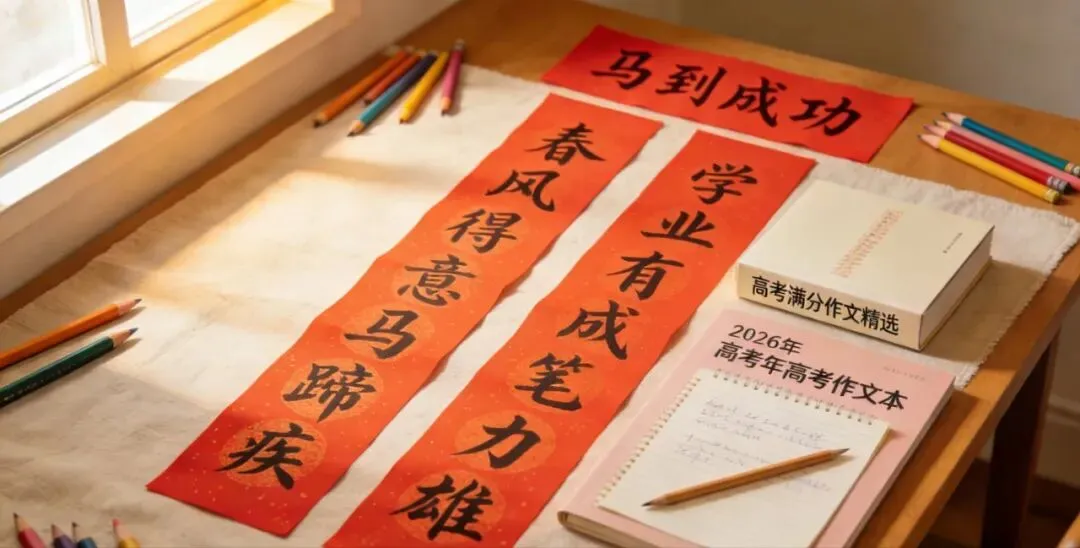 马到成功
春风得意马蹄疾
学业有成笔力雄
高考满分作文精选
2026年
高考年高考作文本